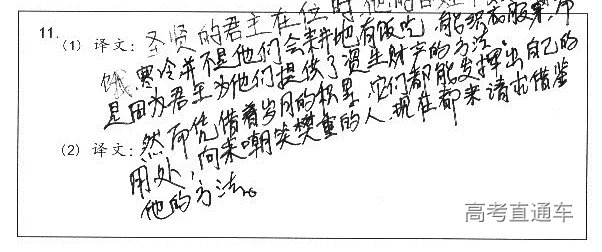 11.
(1) 译文：圣贤的君主在位时，他的百姓不
饿、寒冷并不是他们会耕地有饭吃，能织衣服来
是因为君主为他们提供了资生财产的方法
(2) 译文：然而凭借着岁月的积累，它们都能发挥出自己的
用处，向来嘲笑樊重的人，现在都来请求借鉴
他的方法。
高考直通车